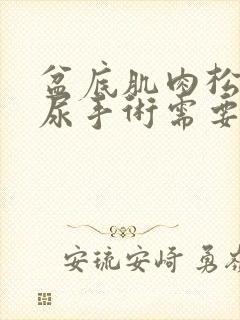 盆底肌肉松
尿手術需要
安琉安崎 勇